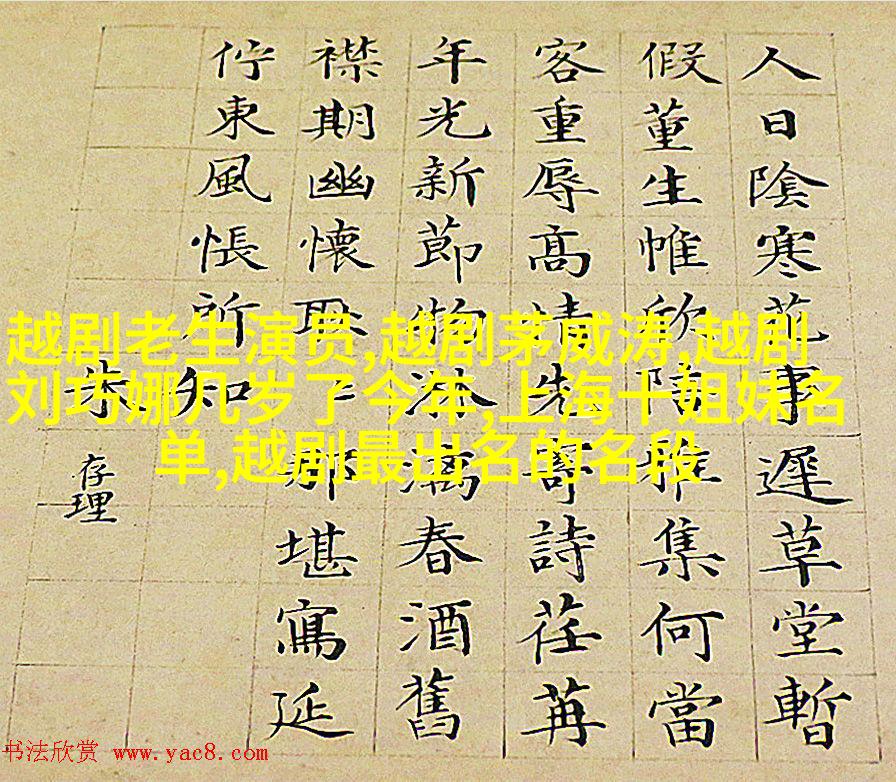 人日陰寒花事遲草堂暫
假董生帷欣陪雅集何當
客重辱高情先寄詩荏苒
年光新節物淋漓春酒舊
襟期幽懷聊那堪寫延
佇東風悵所知
朱存理
越剧老生演员,越剧茅威涛,越剧
刘巧娜几岁了今年,上海十姐妹名
单,越剧最出名的名段
书法欣赏 www.yac8.com